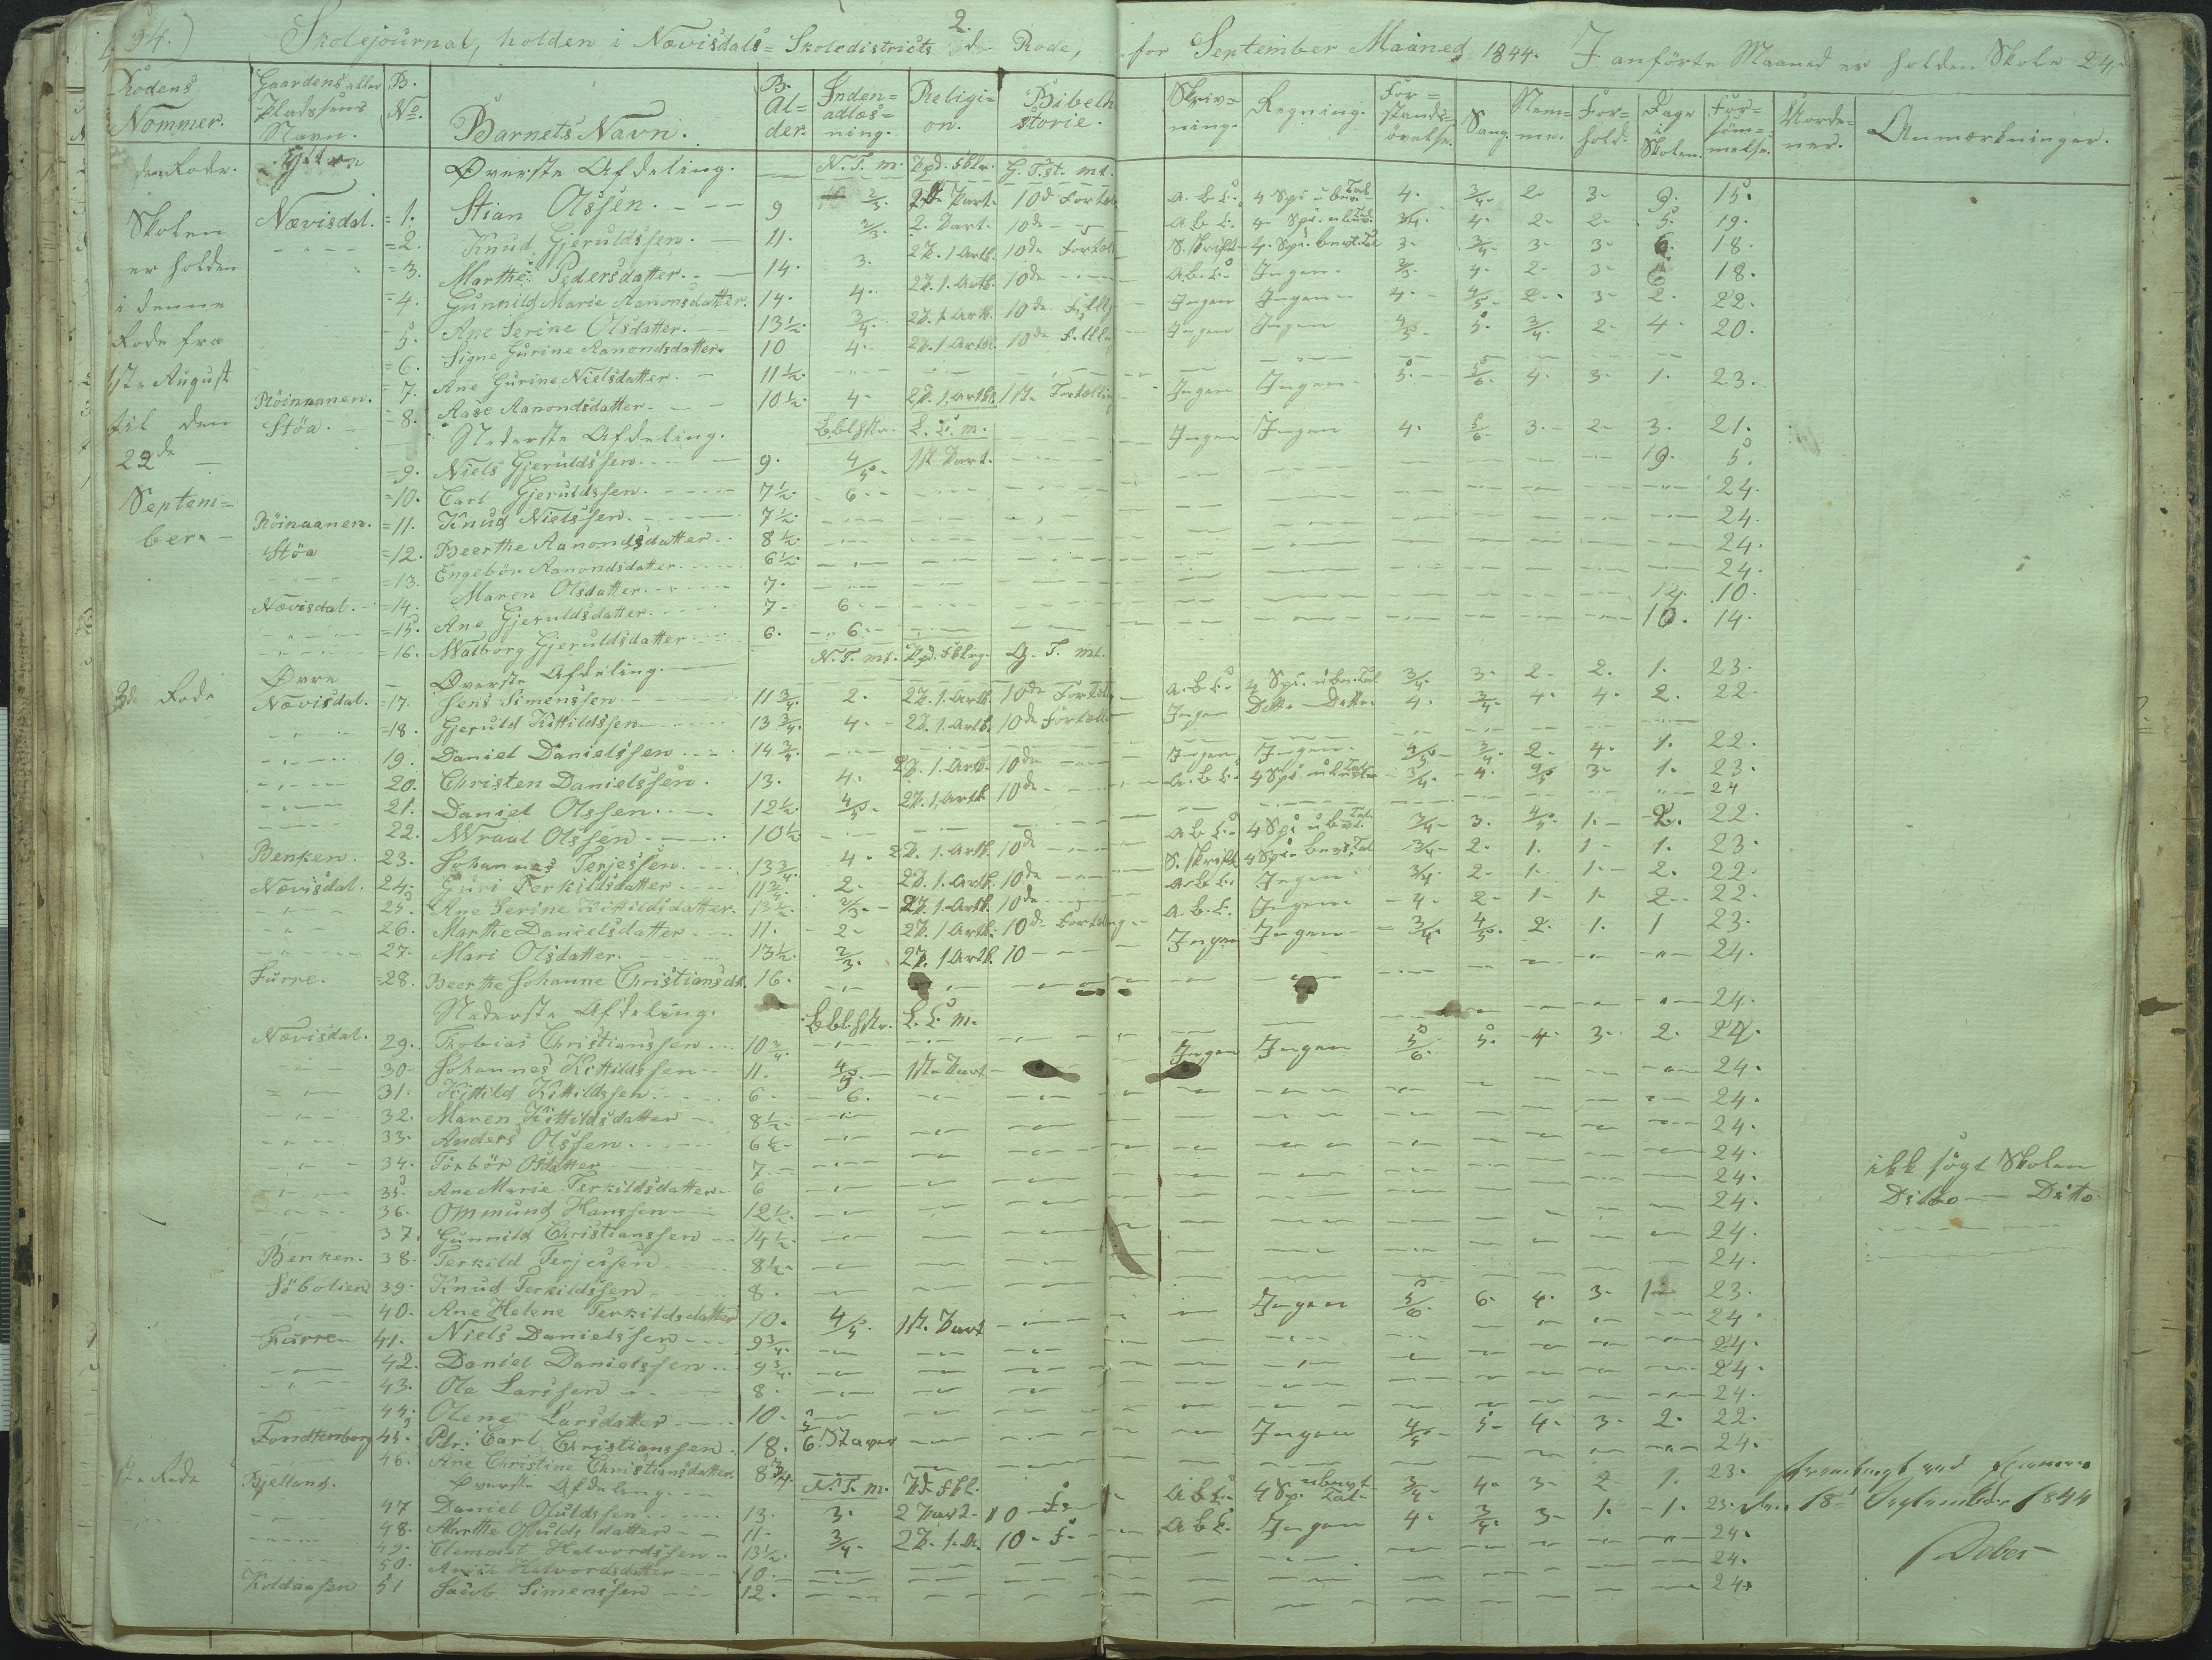 94.) Skolejournal, holden i Nævisdals= Skoledistricts 2de Rode, for September Maaned 1844. I anførte Maaned er holden Skole 24 d
Rodens Nommer. | Gaardens eller Pladsens Navn. | B. No. | Barnets Navn. | B. Al=der. | Inden=adlæs=ning. | Religi=on. | Bibelhistorie. | Skriv=ning. | Regning. | For=stands=øvelse. | Sang. | Nem=me. | For=hold. | Dage i Skolen. | For=søm=melse. | Vurde=ner. | Anmærkninger.
Rode. Øverste Afdeling. N. T. m.
Skolen Nævisdal. = 1. Stian Olssen. 9 2/3. 2de Part. 10de Fortæl A. B. C. 4 Spi 4. 3/4. 2- 3- 9. 15.
=2. Knud Gjeruldssen. 11. 2/3. 2. Part. 10de A. B. C. 4 Spi. 3/4. 4. 2- 2- 5. 19.
er holden =3. Marthe Pedersdatter. 14. 3. 2P. 1 Artk. 10de Fortæl S. Skrift 4. Spi. 3- 3/4- 3- 3- 6. 18.
i denne =4. Gunnild Marie Aanonsdatter. 14. 4. 2P. 1. Artk. 10de A. B. C. Ingen. 2/3. 4- 2- 3- 6 18.
Rode fra 5. Ane Serine Olsdatter. 13½. 3/4. 2P. 1 Artk. 10de Ingen Ingen 4- 4/5- 2- 3- 2. 22.
=6. Signe Gurine Aanondsdatter. 10 4. 2P. 1 Artk. 10de Ingen Ingen 4/5. 5. 3/4. 2- 4- 20.
1ste August 7. Ane Gurine Nielsdatter. 11½.
til den Röinaanen. =8. Aase Aanondsdatter. 10½. 4- 2P. 1. Artk. 1ste Fortælling Ingen Ingen 5. 5/6. 4. 3- 1. 23.
Stöa. Nederste Afdeling. L. L. m.
22de =9. Niels Gjeruldssen. 9. 4/5. 1ste Part. Ingen Ingen 4. 5/6. 3- 2- 3. 21.
Septem= =10. Carl Gjeruldssen. 7½. 6 19. 5.
ber. Röinaanen. =11. Knud Nielssen. 7½. 24.
Stöa =12. Beerthe Aanondsdatter 8½. 24.
=13. Engebör Aanondsdatter. 6½. 24.
Nævisdal. =14. Maren Olsdatter. 7. 24.
=15. Ane Gjeruldsdatter. 7. 6 10.
=16. Walborg Gjeruldsdatter 6. 6. 10. 14.
3de Rode Øvre Øverste Afdeling. N. T. mt. G. T. mt.
Nævisdal. =17. Jens Simenssen 11¾. 2. 2P. 1. Artk. 10de Fortæl A. B. C. 4 Spi. 3/4. 3- 2- 2. 1. 23.
=18. Gjeruld Kittildssen 13¾. 4. 2P. 1. Artk. 10de Fortæll Ingen Ditto Ditto 4. 3/4- 4- 4. 2. 22.
19. Daniel Danielssen 14¾.
20. Christen Danielssen. 13. 4. 2P. 1. Artk. 10de Ingen Ingen. 4/5- 3/4- 2- 4- 1. 22.
21. Daniel Olssen. 12½. 4/5. 2P. 1. Artk. 10de A. B. C. 4 Spi 3/4. 4. 3- 1. 23.
22. Wraal Olssen. 10½. 24
Benken. 23. Johannes Terjessen. 13¾. 4. 2P. 1. Artk. 10de A. B. C. 4 Spi 3/4- 3. 4/5. 1. 2. 22.
Nævisdal. 24. Guri Terkildsdatter 11¾. 2. 2P. 1. Artk. 10de S. Skrift 4 Spi. 3/4- 2. 1. 1. 1. 23.
25. Ane Serine Kittildsdatter. 13½. 2/3. 2P. 1. Artk. 10de A. B. C. Ingen 3/4. 2. 1. 1. 2. 22.
26. Marthe Danielsdatter 11. 2. 2P. 1 Artk. 10de Fortæling A. B. C. Ingen 4- 2- 1- 1. 2. 22.
27. Mari Olsdatter. 13½. 2/3. 2P. 1 Artk. 10 Ingen Ingen 3/4. 4/5. 2. 1. 1 23.
Furre. =28. Beerthe Johanne Christiansdt. 16. 24.
Nederste Afdeling. L. L. m.
Nævisdal. 29. Thobias Christianssen 10¾. 24.
30. Johannes Kittildssen 11. 4/5. 1ste Part Ingen Ingen 5/6. 5. 4. 3. 2. 22.
31. Kittild Kittildssen 6. 6. 24.
32. Maren Kittildsdatter 8½. 24.
33. Anders Olssen. 6½. 24.
34. Torbör Olsdatter 7. 24.
35. Ane Marie Terkildsdatter 6 24.
36. Ommund Hanssen 12½. 24. ikk søgt Skolen
37. Gunnild Christianssen 14½. 24. Ditto Ditto
Benken. 38. Terkild Terjessen 8½. 24.
Söbolien 39. Knud Terkildssen 8. 24.
40. Ane Helene Terkildsdatter 10. 4/5. 1ste Part Ingen 5/6. 6. 4. 3. 1 23.
Furre 41. Niels Danielssen 9¾. 24.
42. Daniel Danielssen 9¾. 24.
43. Ole Larssen 8. 24.
44. Olene Larsdatter 10. 24.
Tondtenborg 45. Pdr: Carl Christianssen. 18. 6. Staver Ingen 4/5- 5- 4. 3. 2. 22.
46. Ane Christine Christiansdatter. 8¾. 24.
Rode Bjelland. Øverste Afdeling. N. T. m.
47 Daniel Ofuldssen 13. 3. 2 Part. 10 F. A. B. C. 4 Sp. 3/4. 4. 3. 2 1. 23.
48. Marthe Ofulds datter 11. 3/4. 2P. 1. A. 10. F. A. B. C. Ingen 4. 3/4. 3. 1. 1. 23. den 18de September 1844
49. Clemmet Halvordssen 13½. 24.
50. Halvordsdatter 10. 24. Debes
Koldaasen 51 Jacob Simenssen 12. 24.